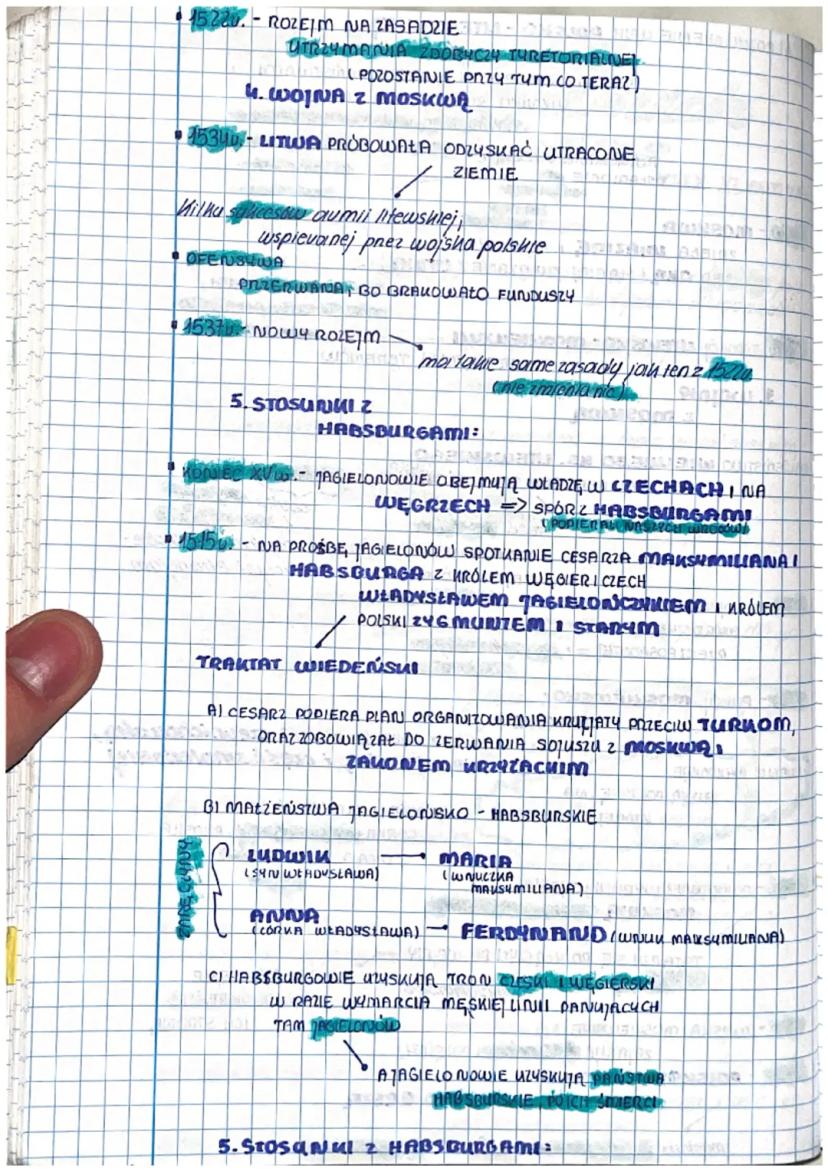 • 1522r. - ROZEJM NA ZASADZIE
UTRZYMANIA ZDOBYCZY TYRETORIALNEJ
(POZOSTANIE PRZY TYM CO TERAZ)
4. WOJNA Z MOSKWĄ
• 1534r. - LITWA PRÓBOWAŁA ODZYSKAĆ UTRACONE
ZIEMIE
Kilka sukcesów armii litewskiej,
wspieranej przez wojska polskie
• OFENSYWA
PRZERWANA, BO BRAKOWAŁO FUNDUSZY
• 1537r. - NOWY ROZEJM
ma takie same zasady jak ten z 1522r.
(nie zmienia nic)
5. STOSUNKI Z
HABSBURGAMI:
• KONIEC XV w. - JAGIELONOWIE OBEJMUJĄ WŁADZĘ W CZECHACH I NA
WĘGRZECH => SPÓR Z HABSBURGAMI
(POPIERAŁ NASZYCH WROGÓW)
• 1515r. - NA PROŚBĘ JAGIELONÓW SPOTKANIE CESARZA MAKSYMILIANA I
HABSBURGA Z KRÓLEM WĘGIER I CZECH
WŁADYSŁAWEM JAGIELOŃCZYKIEM I KRÓLEM
POLSKI ZYGMUNTEM I STARYM
TRAKTAT WIEDEŃSKI
A) CESARZ POPIERA PLAN ORGANIZOWANIA KRUCJATY PRZECIW TURKOM,
ORAZ ZOBOWIĄZAŁ DO ZERWANIA SOJUSZU Z MOSKWĄ I
ZAKONEM KRZYŻACKIM
B) MAŁŻEŃSTWA JAGIELOŃSKO - HABSBURSKIE
ZARĘCZYNY
LUDWIK — MARIA
(SYN WŁADYSŁAWA) (WNUCZKA
MAKSYMILIANA)
ANNA
(CÓRKA WŁADYSŁAWA) — FERDYNAND (WNUK MAKSYMILIANA)
C) HABSBURGOWIE UZYSKUJĄ TRON CZESKI I WĘGIERSKI
W RAZIE WYMARCIA MĘSKIEJ LINII PANUJĄCYCH
TAM JAGIELONÓW
A JAGIELONOWIE UZYSKUJĄ PAŃSTWA
HABSBURSKIE PO ICH ŚMIERCI
5. STOSUNKI Z HABSBURGAMI: